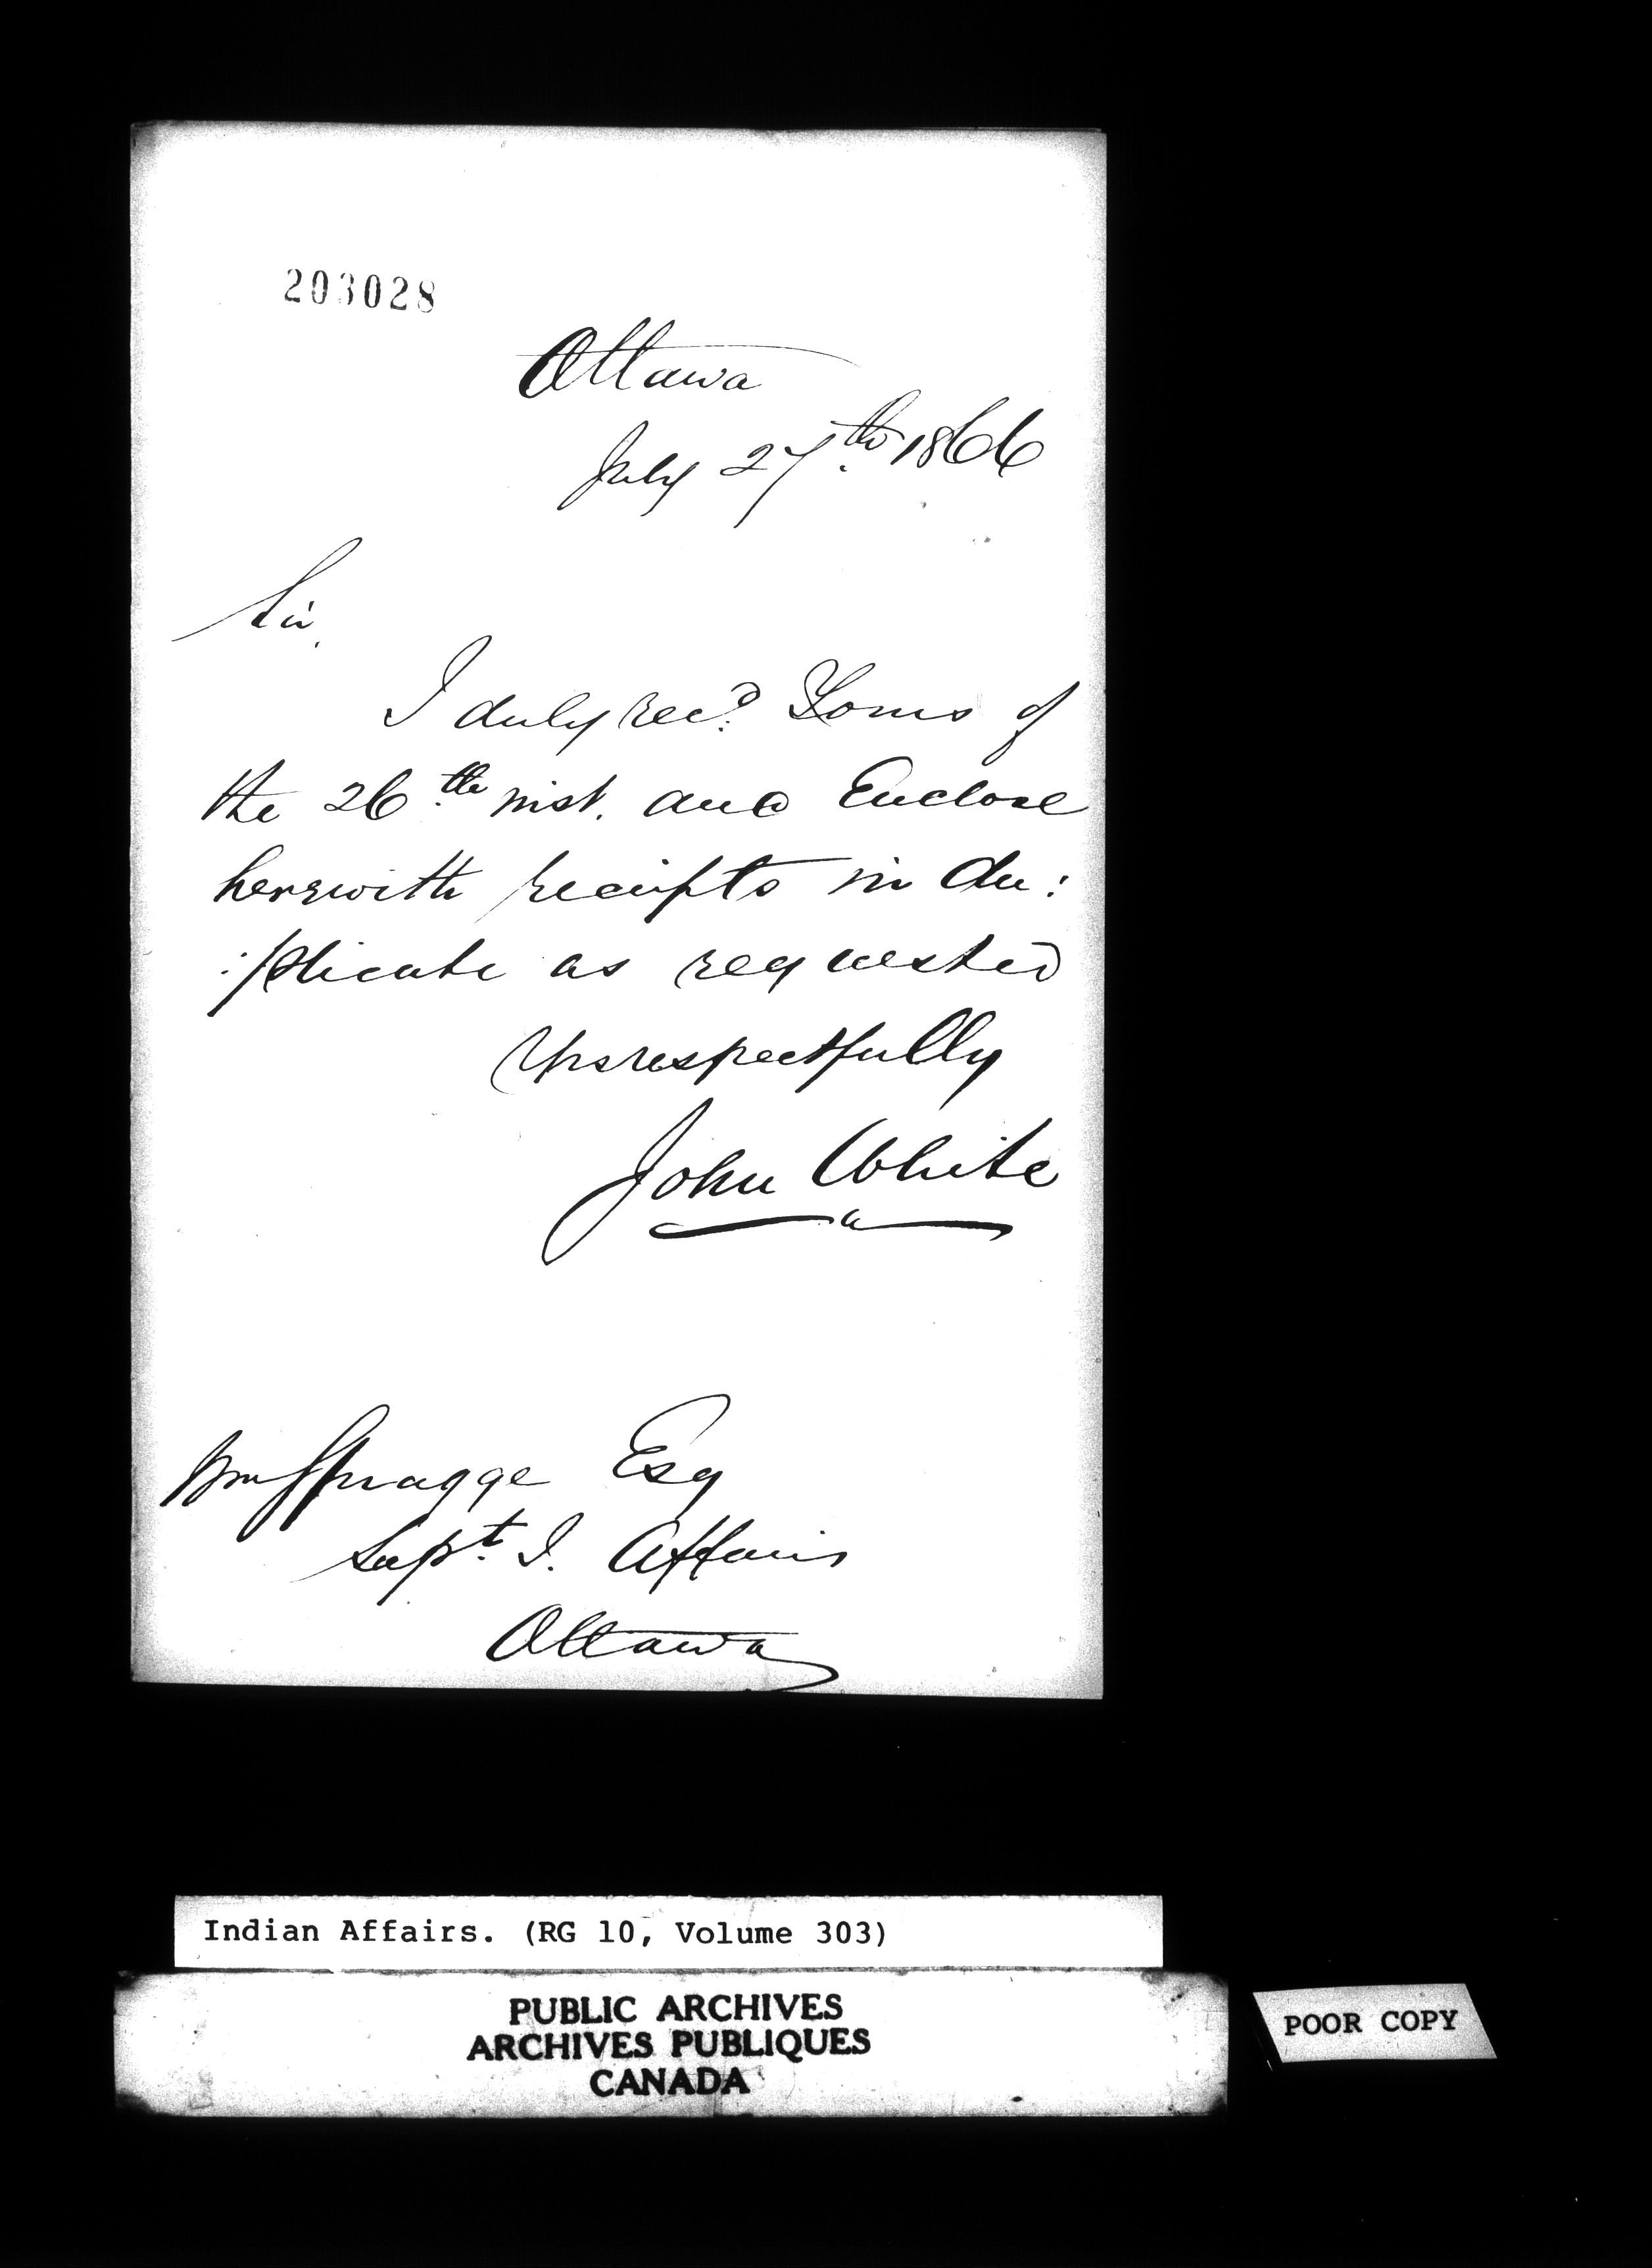 203028
Ottawa
July 27th 1866
Sir,
I duly recd. Yours of
the 26th inst. and Enclose
herewith receipts in du:
:plicate as requested
Yrs respectfully
John White
Wm Spragge Esq
Supt. I. Affairs
Ottawa
Indian Affairs. (RG 10, Volume 303)
PUBLIC ARCHIVES
ARCHIVES PUBLIQUES
CANADA
POOR COPY